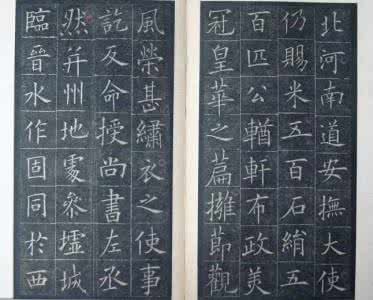 北河南道安撫大使
仍賜米五百石絹五
百匹公輶軒布政美
冠皇華之篇擁節觀
風榮甚繡衣之使事
訖反命授尚書左丞
然并州地處參墟城
臨晉水作固同於西